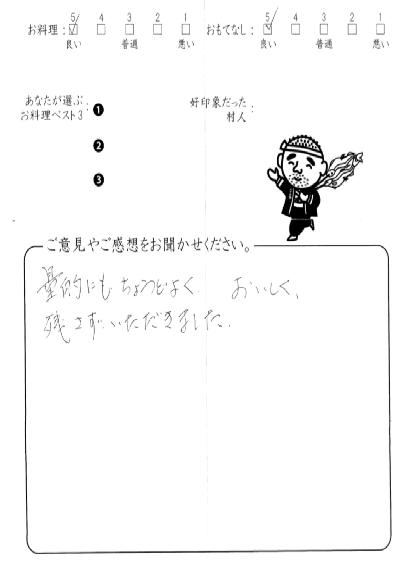 お料理： 5 4 3 2 1 おもてなし： 5 4 3 2 1
良い 普通 悪い 良い 普通 悪い
あなたが選ぶ
お料理ベスト3： ❶
❷
❸
好印象だった
村人：
ご意見やご感想をお聞かせください。
量的にもちょうどよく おいしく、
残さずいただきました。